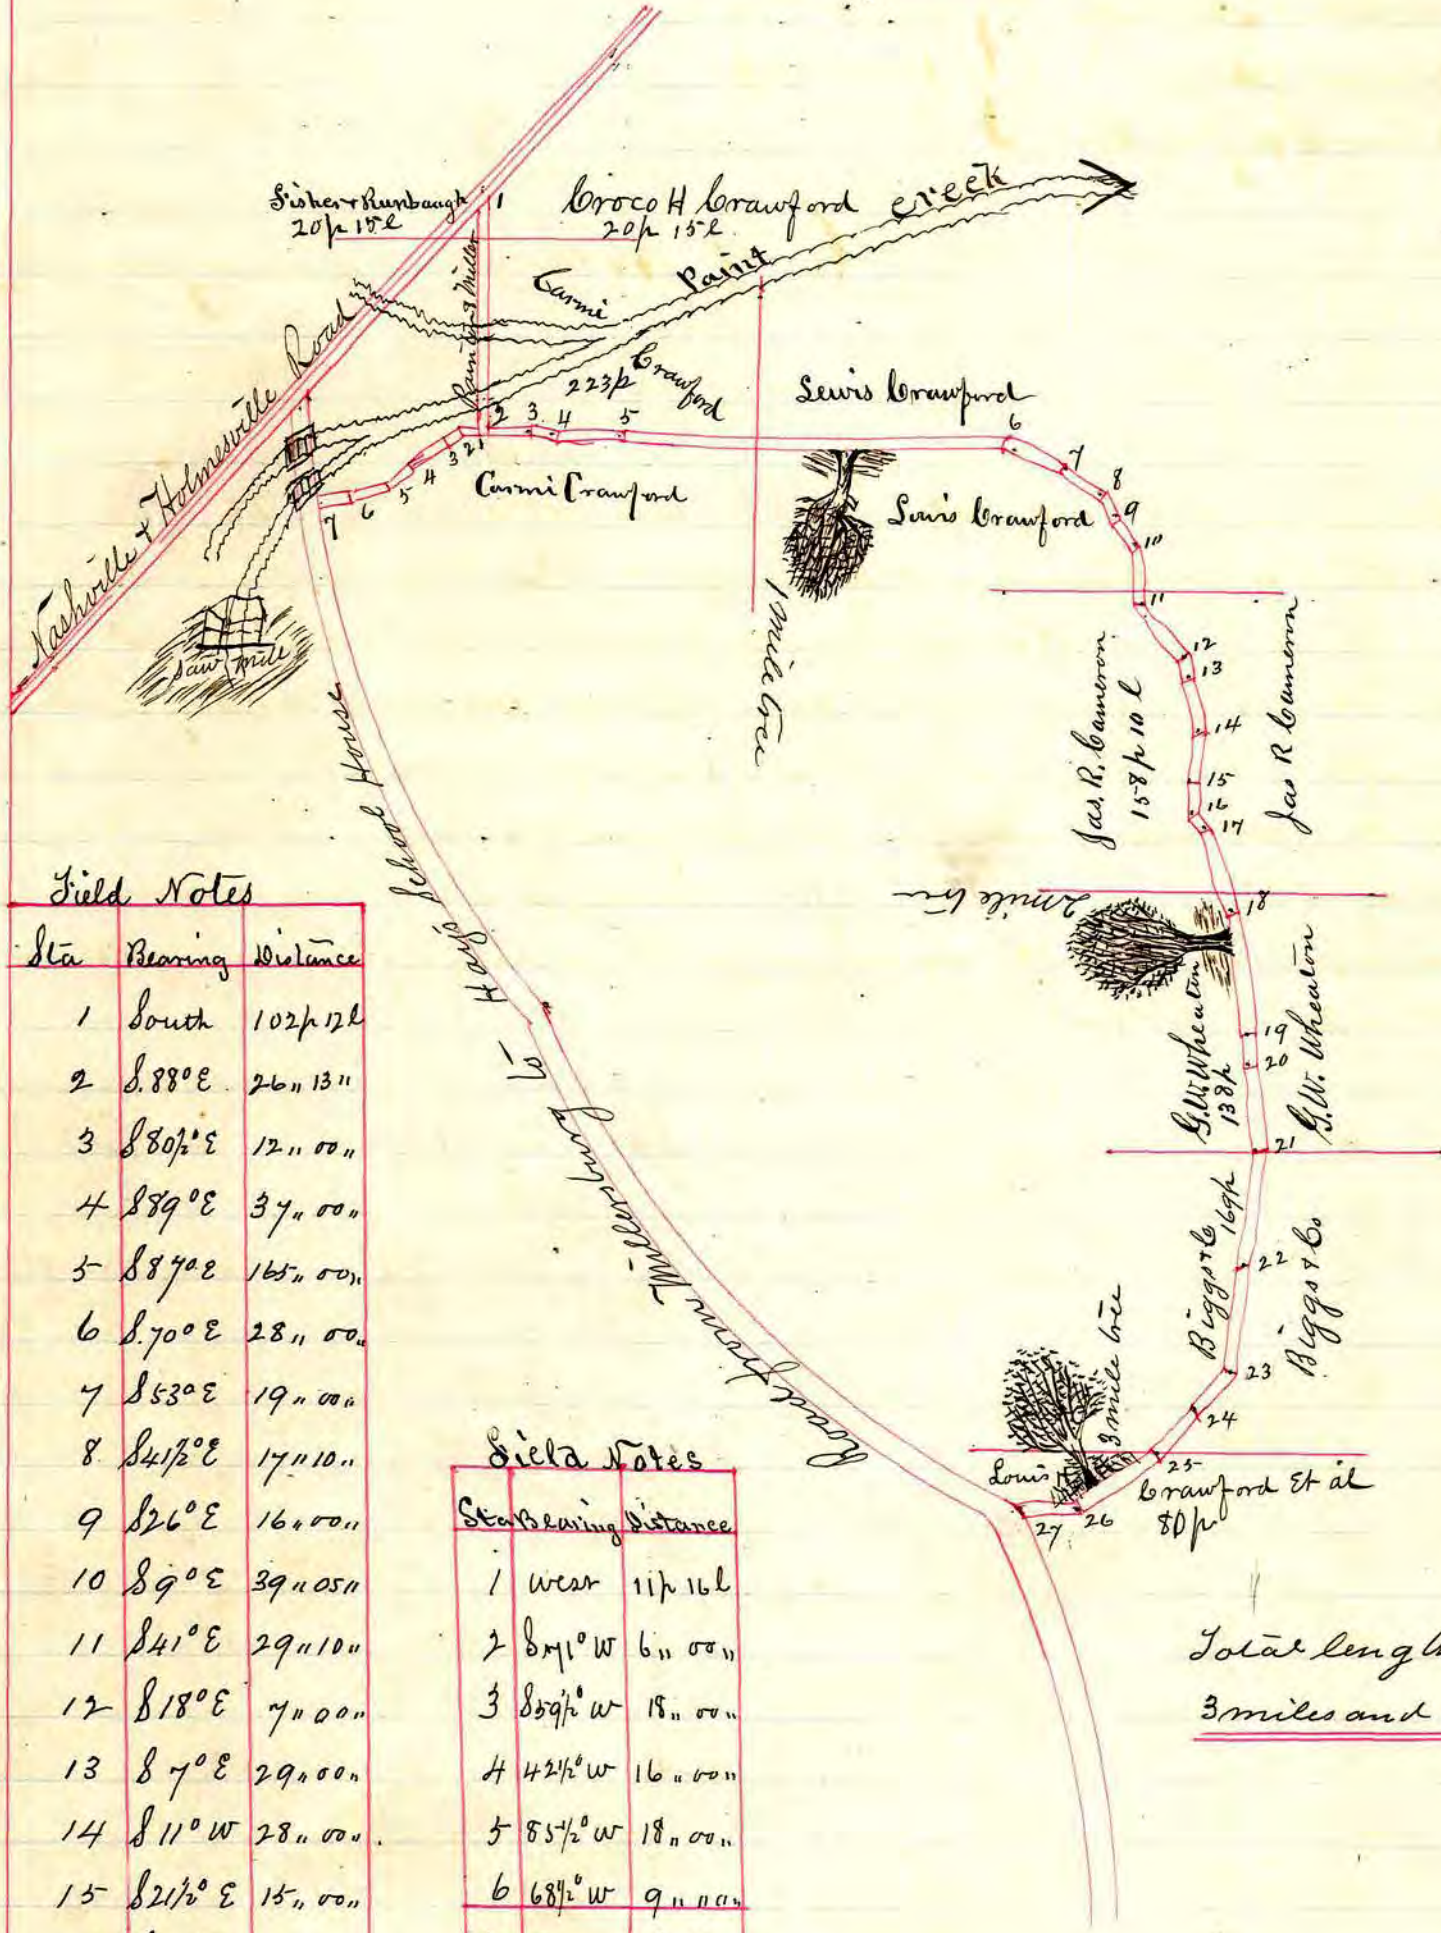 Fisher & Runbaugh
20p 15l
1
Croco H Crawford
20p 15l
Paint creek
Carmi
Crawford
223p
Miller
Nashville & Holmesville Road
2 3 4 5
Lewis Crawford
6
7
8
9
10
7 6 5 4 3 2 1
Carmi Crawford
Louis Crawford
1 mile tree
11
12
13
14
15
16
17
Jas. R. Cameron
158p 10l
Jas R Cameron
Saw Mill
2 mile tree
18
19
20
21
G.W. Wheaton
138p
G.W. Wheaton
Biggs & Co 169p
Biggs & Co
22
23
24
25
26
27
3 mile tree
Louis
Crawford Et al
80p
Road from Millersburg to Hays School House
Total leng
3 miles and
Field Notes
Sta Bearing Distance
1 South 102p 12l
2 S.88° E. 26 " 13 "
3 S80½° E 12 " 00 "
4 S89° E 37 " 00 "
5 S87° E 165 " 00 "
6 S.70° E 28 " 00 "
7 S53° E 19 " 00 "
8. S41½° E 17 " 10 "
9 S26° E 16 " 00 "
10 S9° E 39 " 05 "
11 S41° E 29 " 10 "
12 S18° E 7 " 00 "
13 S7° E 29 " 00 "
14 S11° W 28 " 00 "
15 S21½° E 15 " 00 "
Field Notes
Sta Bearing Distance
1 west 11p 16l
2 S71° W 6 " 00 "
3 S59½° W 18 " 00 "
4 42½° W 16 " 00 "
5 85½° W 18 " 00 "
6 68½° W 9 "